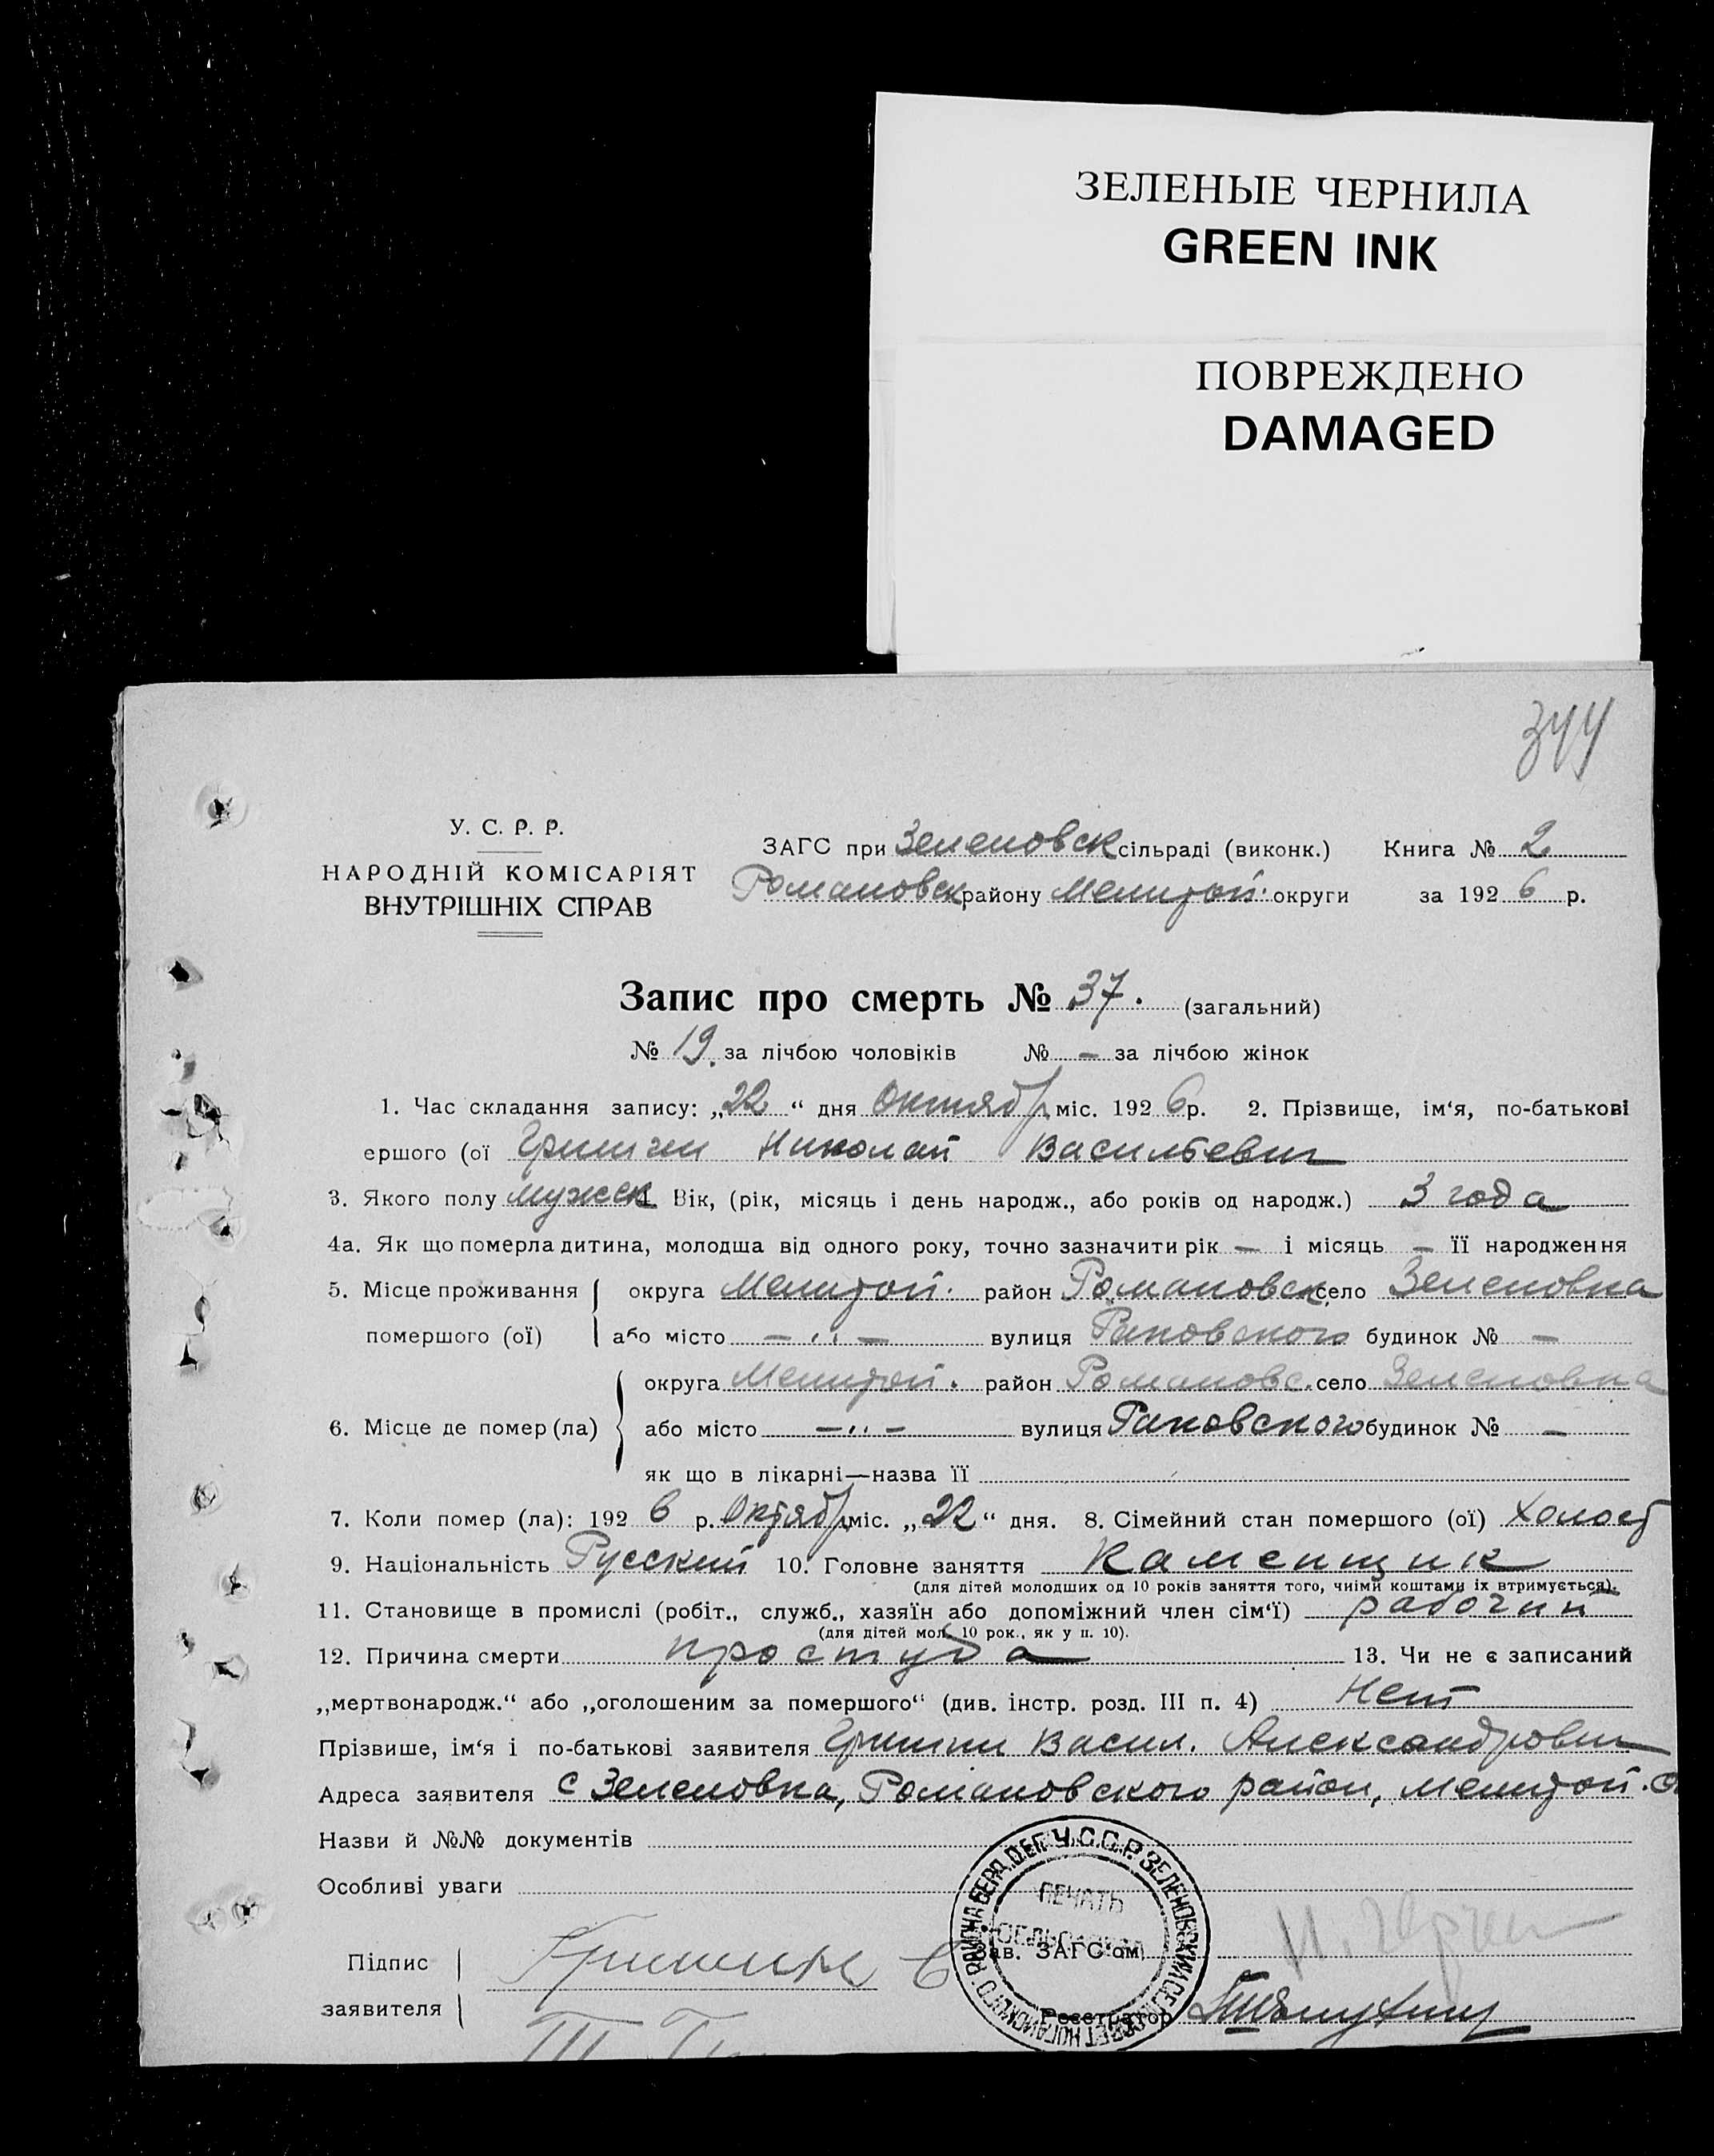 ЗЕЛЕНЫЕ ЧЕРНИЛА
GREEN INK
ПОВРЕЖДЕНО
DAMAGED
344
У. С. Р. Р.
НАРОДНІЙ КОМІСАРІЯТ
ВНУТРІШНІХ СПРАВ
ЗАГС при Зеленовск сільраді (виконк.) Книга № 2
Романовск району Мелитоп. округи за 1926 р.
Запис про смерть № 37. (загальний)
№ 19. за лічбою чоловіків № — за лічбою жінок
1. Час складання запису: „22“ дня Октябр міс. 1926 р. 2. Прізвище, ім‘я, по-батькові
ершого (ої Гришин Николай Васильевич
3. Якого полу мужск 4. Вік, (рік, місяць і день народж., або років од народж.) 3 года
4а. Як що померла дитина, молодша від одного року, точно зазначити рік — і місяць — її народження
5. Місце проживання округа Мелитоп. район Романовск. село Зеленовка
помершого (ої) або місто — „ — вулиця Раковского будинок № —
округа Мелитоп. район Романовс. село Зеленовка
6. Місце де помер (ла) або місто — „ — вулиця Раковского будинок № —
як що в лікарні—назва її
7. Коли помер (ла): 1926 р. Октябр міс. „22“ дня. 8. Сімейний стан помершого (ої) Холост
9. Національність Русский 10. Головне заняття Каменщик
(для дітей молодших од 10 років заняття того, чиїми коштами їх втримується).
11. Становище в промислі (робіт., служб., хазяїн або допоміжний член сім‘ї) рабочий
(для дітей мол. 10 рок., як у п. 10).
12. Причина смерти простуда 13. Чи не є записаний
„мертвонародж.“ або „оголошеним за помершого“ (див. інстр. розд. III п. 4) Нет
Прізвише, ім‘я і по-батькові заявителя Гришин Васил. Александрович
Адреса заявителя с Зеленовка, Романовского район, Мелитоп. о
Назви й №№ документів
Особливі уваги
У.С.С.Р. ЗЕЛЕНОВСКИЙ СЕЛЬСОВЕТ НОГАЙСКОГО РАЙОНА БЕРД.
ПЕЧАТЬ
Підпис заявителя Гришин В
Зав. ЗАГС‘ом
Реєстратор